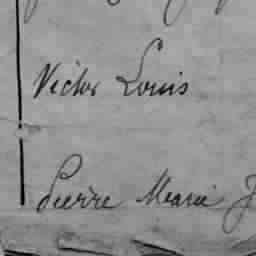 Victor Louis
Pierre Marie J